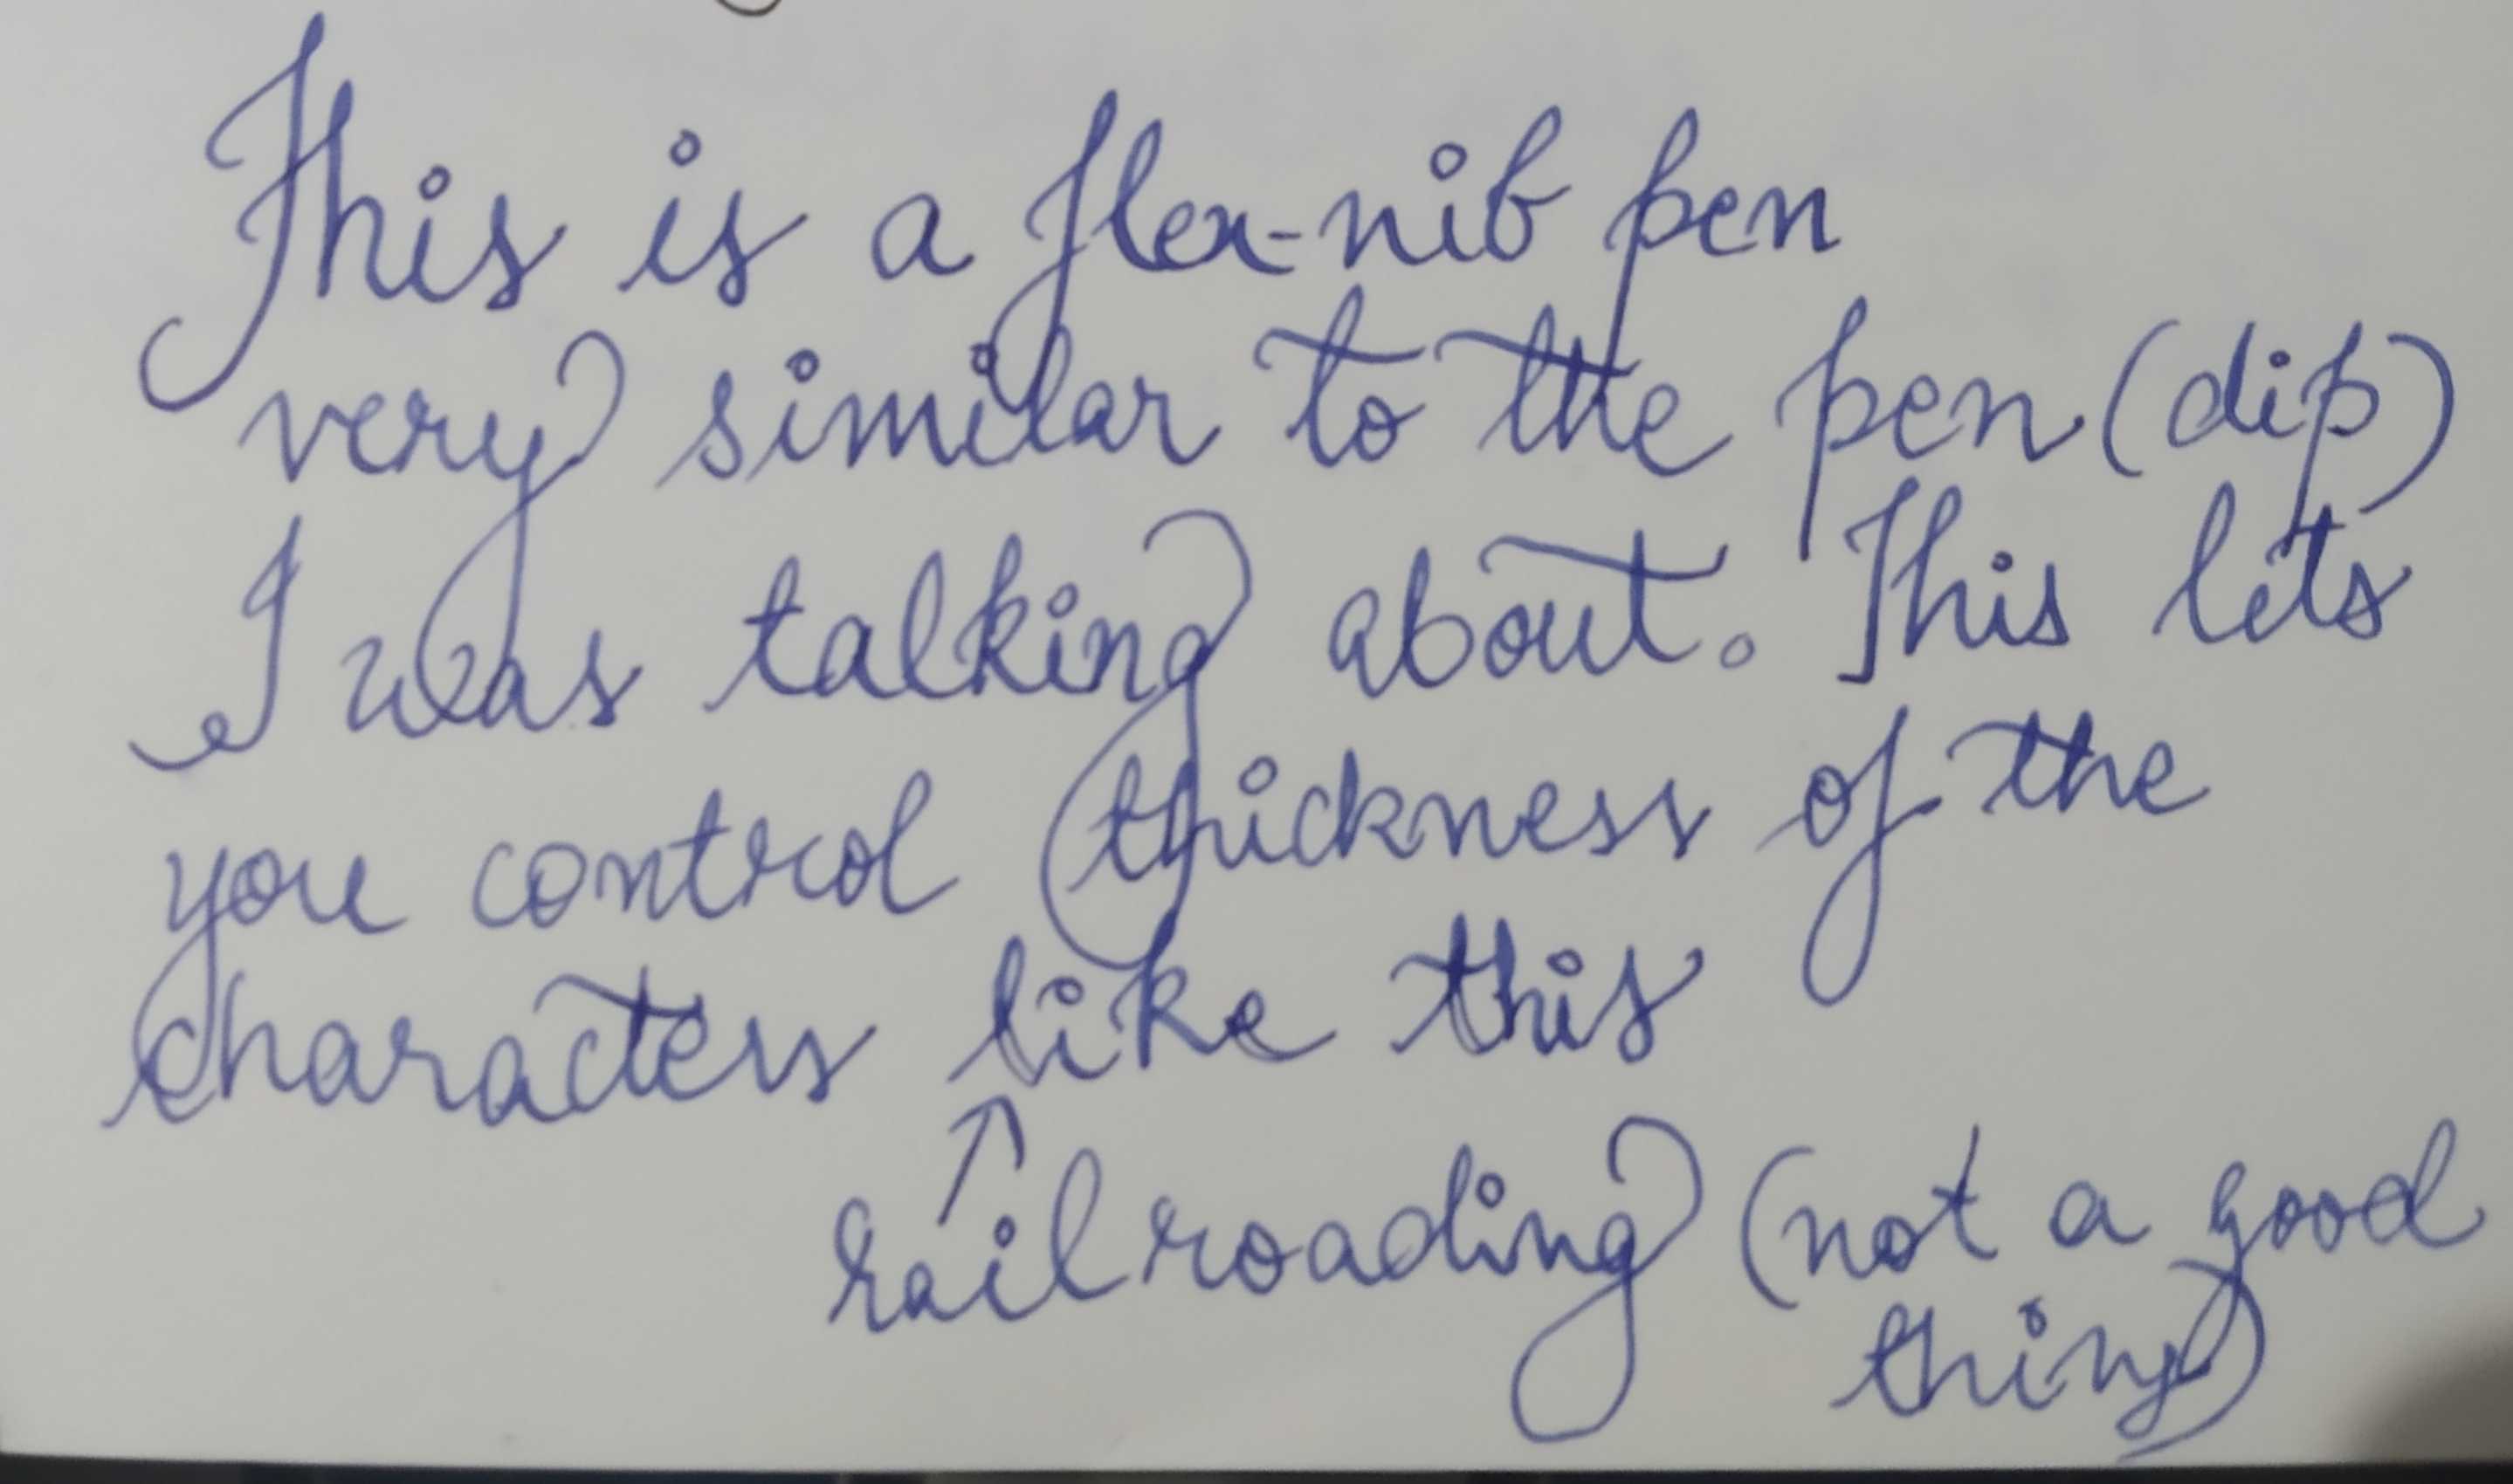 This is a flex-nib pen
very similar to the pen (dip)
I was talking about. This lets
you control thickness of the
characters like this
↑
railroading (not a good
thing)